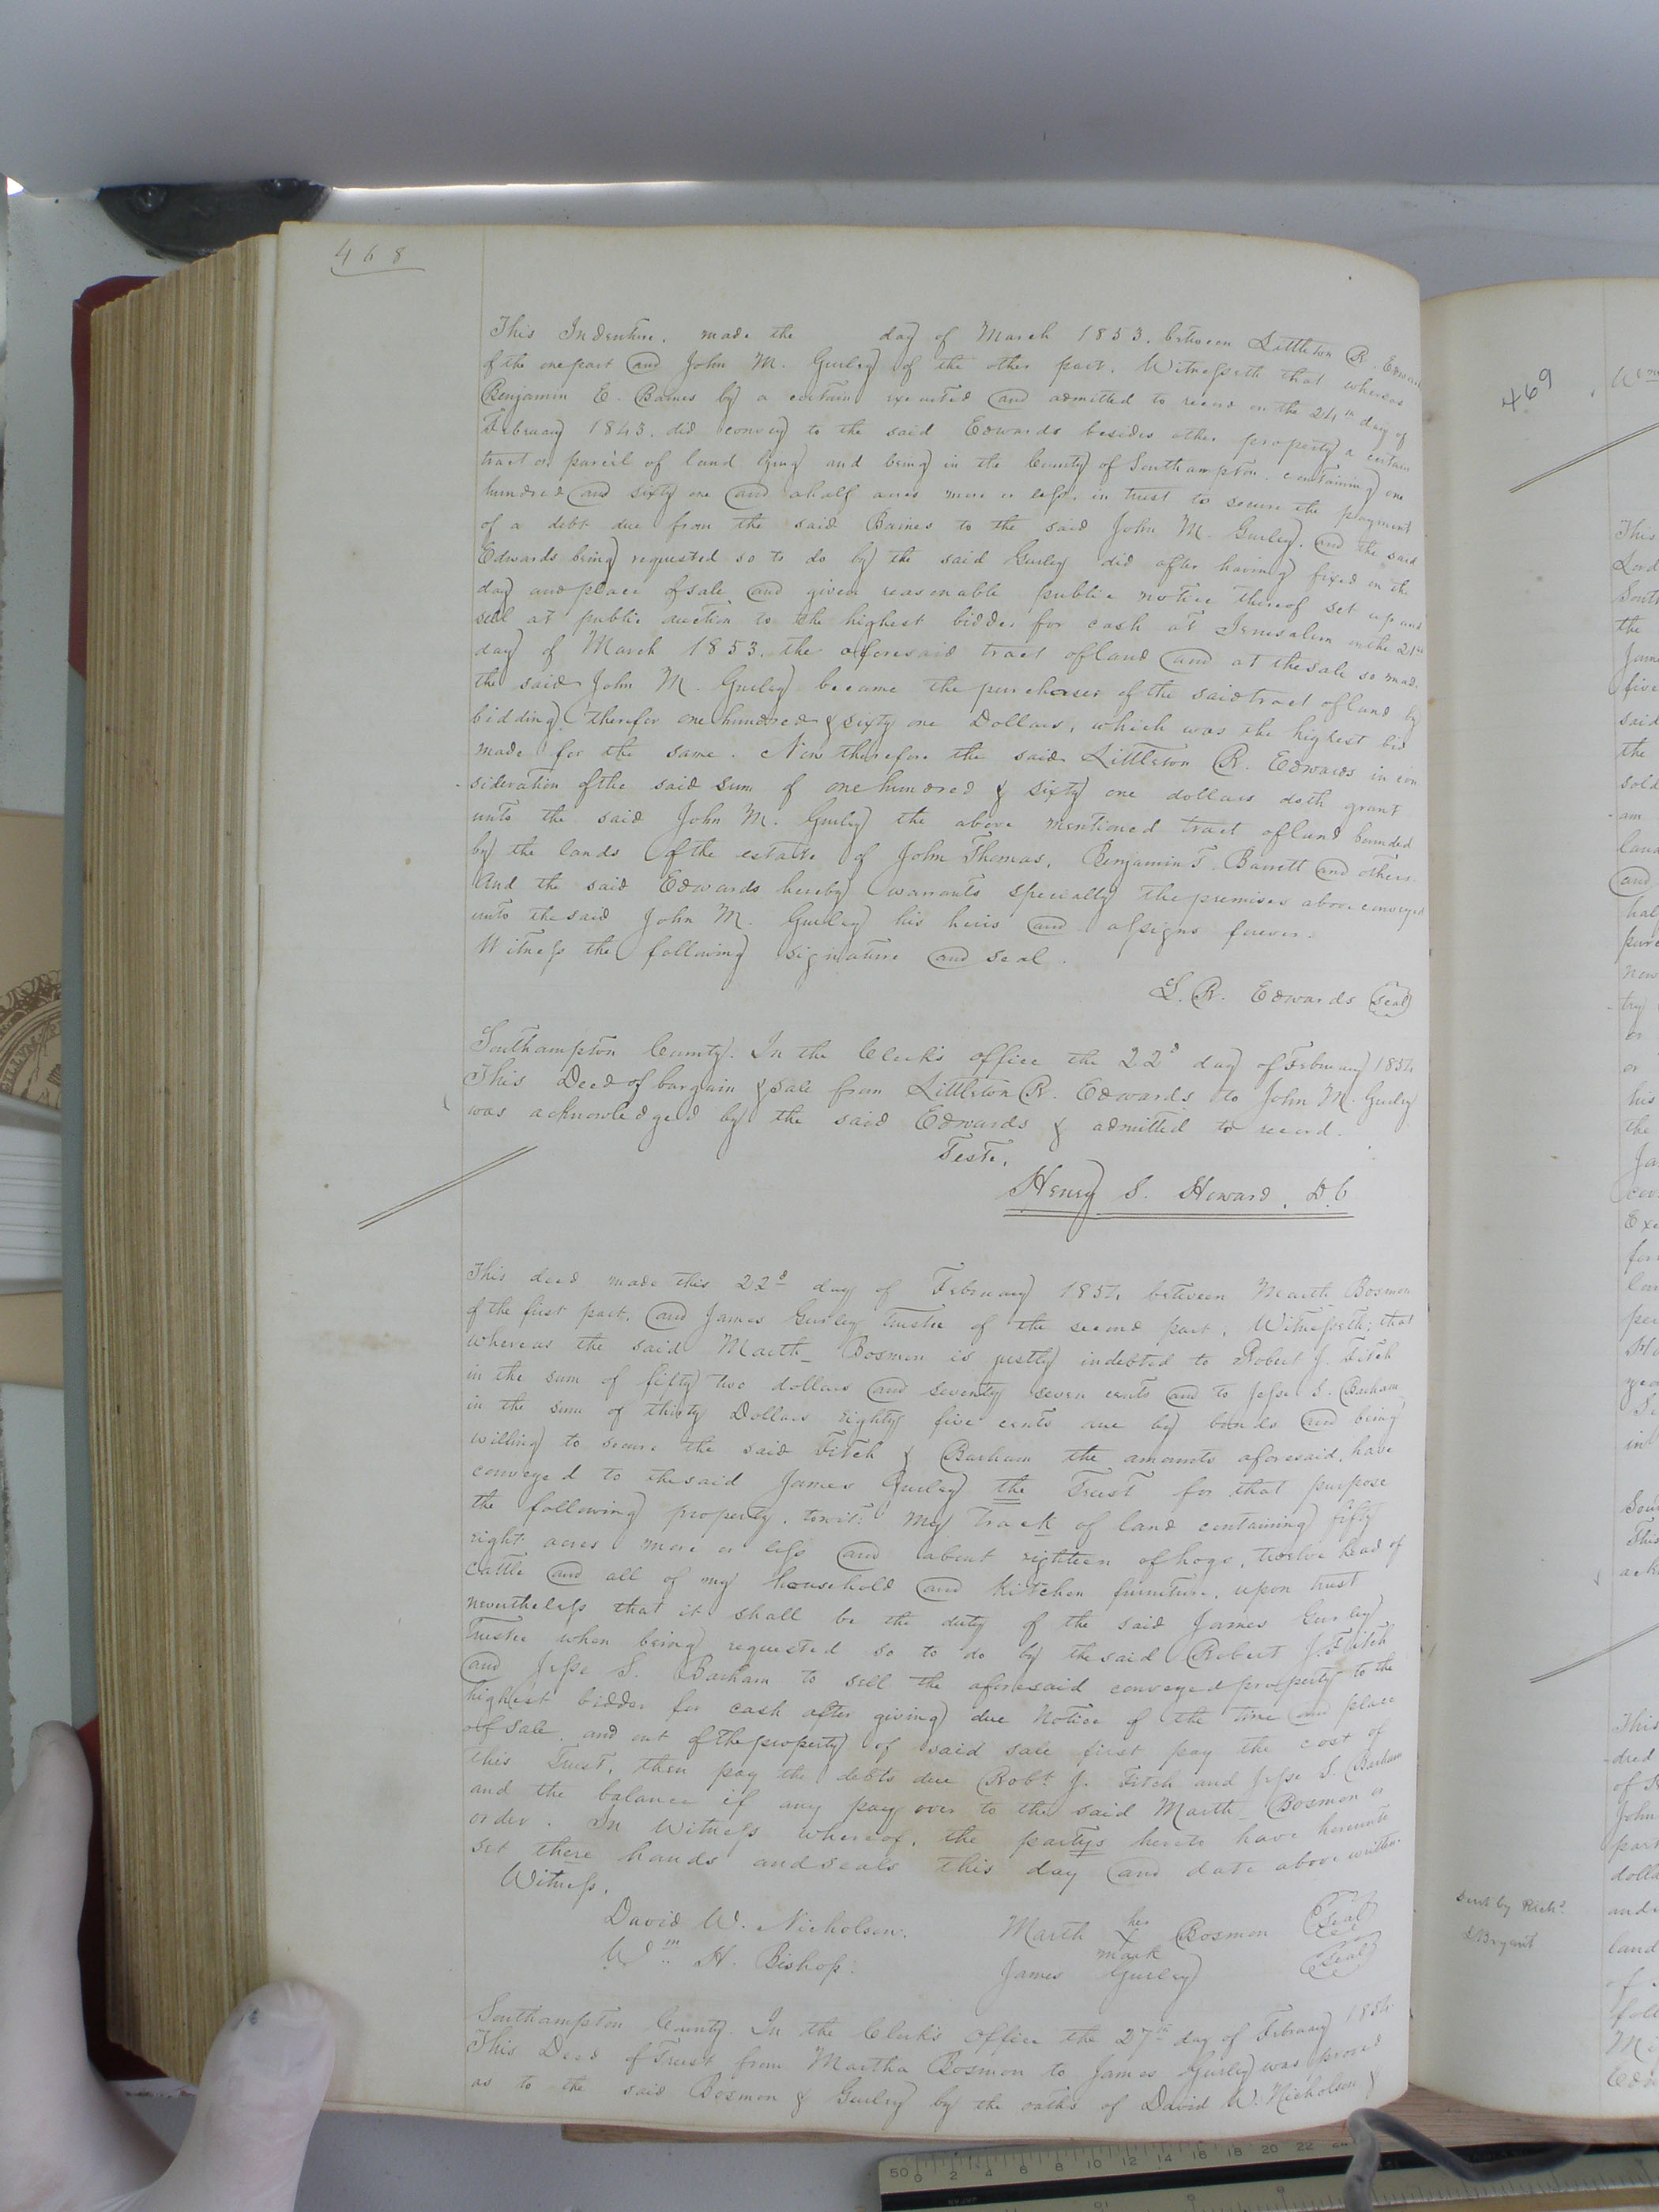 468
This Indenture, made the day of March 1853, between Littleton R. Edwards
of the one part and John M. Gurley of the other part, Witnesseth that whereas
Benjamin E. Baines by a certain executed and admitted to record on the 24th day of
February 1843, did convey to the said Edwards besides other property a certain
tract or parcel of land lying and being in the County of Southampton, containing one
hundred and sixty one and a half acres more or less, in trust to secure the payment
of a debt due from the said Baines to the said John M. Gurley, and the said
Edwards being requested so to do by the said Gurley did after having fixed on the
day and place of sale and given reasonable public notice thereof set up and
sell at public auction to the highest bidder for cash at Jerusalem on the 21st
day of March 1853, the aforesaid tract of land and at the sale so made
the said John M. Gurley became the purchaser of the said tract of land by
bidding therefor one hundred & sixty one Dollars, which was the highest bid
made for the same. Now therefore the said Littleton R. Edwards in con
-sideration of the said sum of one hundred & sixty one dollars doth grant
unto the said John M. Gurley the above mentioned tract of land bounded
by the lands of the estate of John Thomas, Benjamin T. Barrett and others.
And the said Edwards hereby warrants specially the premises above conveyed
unto the said John M. Gurley his heirs and assigns forever.
Witness the following signature and seal.
L. R. Edwards (seal)
Southampton County. In the Clerk's office the 22d day of February 1854
This Deed of bargain & sale from Littleton R. Edwards to John M. Gurley
was acknowledged by the said Edwards & admitted to record.
Teste,
Henry S. Howard, D.C
This deed made this 22d day of February 1854 between Marth Bosmon
of the first part, and James Gurley Trustee of the second part, Witnesseth; that
whereas the said Marth_ Bosmon is justly indebted to Robert J. Fitch
in the sum of fifty two dollars and seventy seven cents and to Jesse S. Barham
in the sum of thirty Dollars eighty five cents due by bonds and being
willing to secure the said Fitch & Barham the amounts aforesaid, have
conveyed to the said James Gurley the Trust for that purpose
the following property, towit: My track of land containing fifty
eight acres more or less and about eighteen of hogs, twelve head of
cattle and all of my household and kitchen furniture, upon trust
nevertheless that it shall be the duty of the said James Gurley
Trustee when being requested so to do by the said Robert J. Fitch
and Jesse S. Barham to sell the aforesaid conveyed property to the
highest bidder for cash after giving due Notice of the time and place
of sale, and out of the property of said sale first pay the cost of
this Trust, then pay the debts due Robt J. Fitch and Jesse S. Barham
and the balance if any pay over to the said Marth_ Bosmon or
order. In Witness whereof, the partys hereto have hereunto
set there hands and seals this day and date above written.
Witness,
David W. Nicholson. Marth her x mark Bosmon (Seal)
Wm H. Bishop. James Gurley (Seal)
Southampton County. In the Clerk's Office the 27th day of February 1854
This Deed of Trust from Martha Bosmon to James Gurley was proved
as to the said Bosmon & Gurley by the oaths of David W. Nicholson &
469